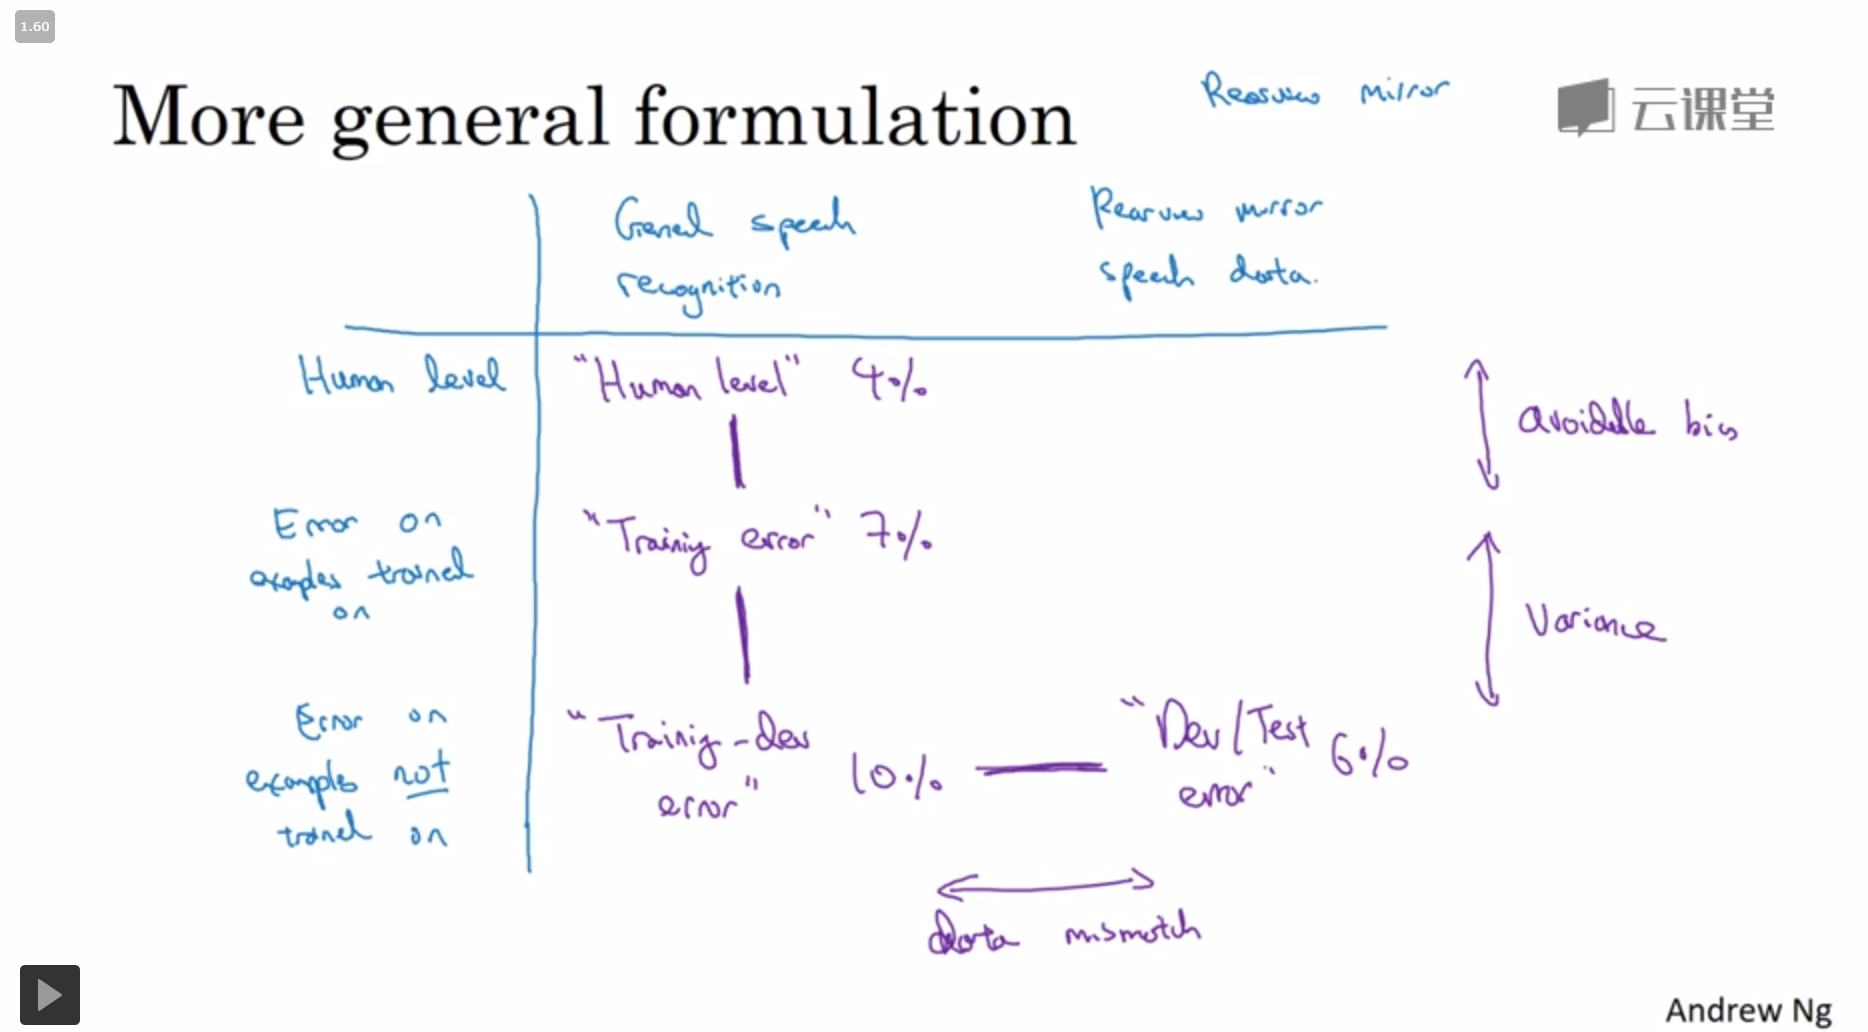 1.60
More general formulation
Rearview mirror
云课堂
General speech
recognition
Rearview mirror
speech data.
Human level
"Human level" 4%
avoidable bias
Error on
examples trained
on
"Training error" 7%
Variance
Error on
examples not
trained on
"Training-dev
error"
10%
"Dev/Test
error"
6%
data mismatch
Andrew Ng